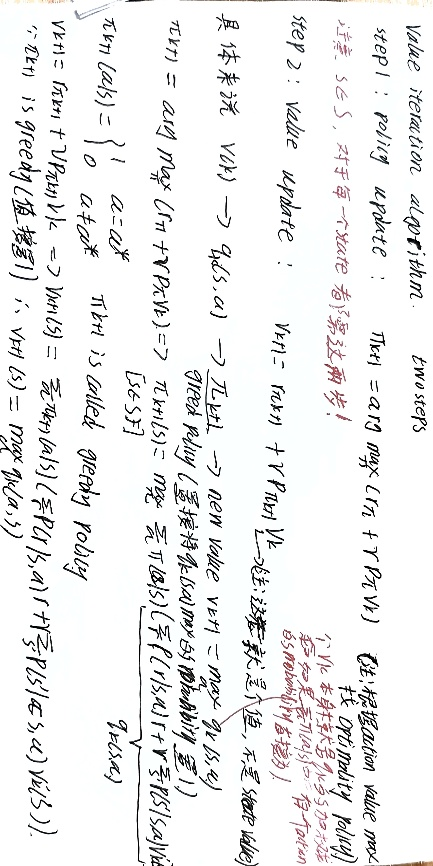 Value iteration algorithm. two steps
step1: policy update: πk+1 = arg max π (rπ + γPπVk) (注:根据action value max找 optimality policy)
注意 s∈S, 对于每一个state 都需这两步!
step 2: value update: Vk+1 = rπk+1 + γPπk+1Vk → 注:这 就是个值, 不是state value
具体来说 Vk(s) → qk(s,a) → πk+1 → new value Vk+1 = max a qk(s,a)
greedy policy (直接将qk(s,a)max的probability置1)
πk+1 = arg max π (rπ + γPπVk) => πk+1(s) = max π Σ π(a|s)(Σ P(r|s,a)r + γ Σ P(s'|s,a)Vk(s'))
[s∈S] qk(s,a)
πk+1(a|s) = { 1 a=a* 0 a≠a* πk+1 is called greedy policy
Vk+1 = rπk+1 + γPπk+1Vk => Vk+1(s) = Σ πk+1(a|s)(Σ P(r|s,a)r + γ Σ P(s'|s,a)Vk(s')).
∵ πk+1 is greedy (值 ) ∴ Vk+1(s) = max a qk(a,s)